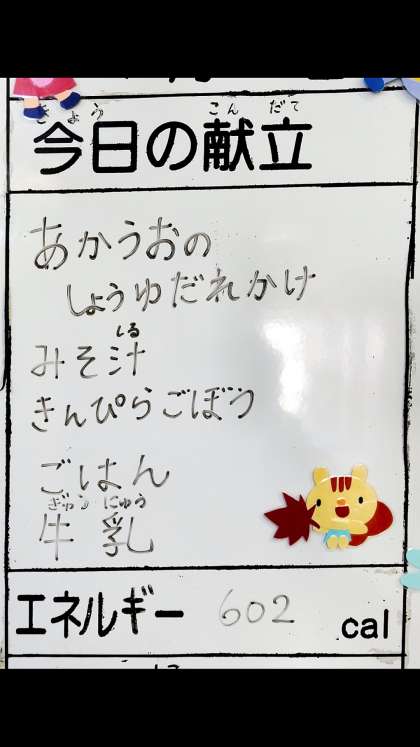 きょう こんだて
今日の献立
あかうおの
しょうゆだれかけ
しる
みそ汁
きんぴらごぼう
ごはん
ぎゅう にゅう
牛乳
エネルギー 602 cal